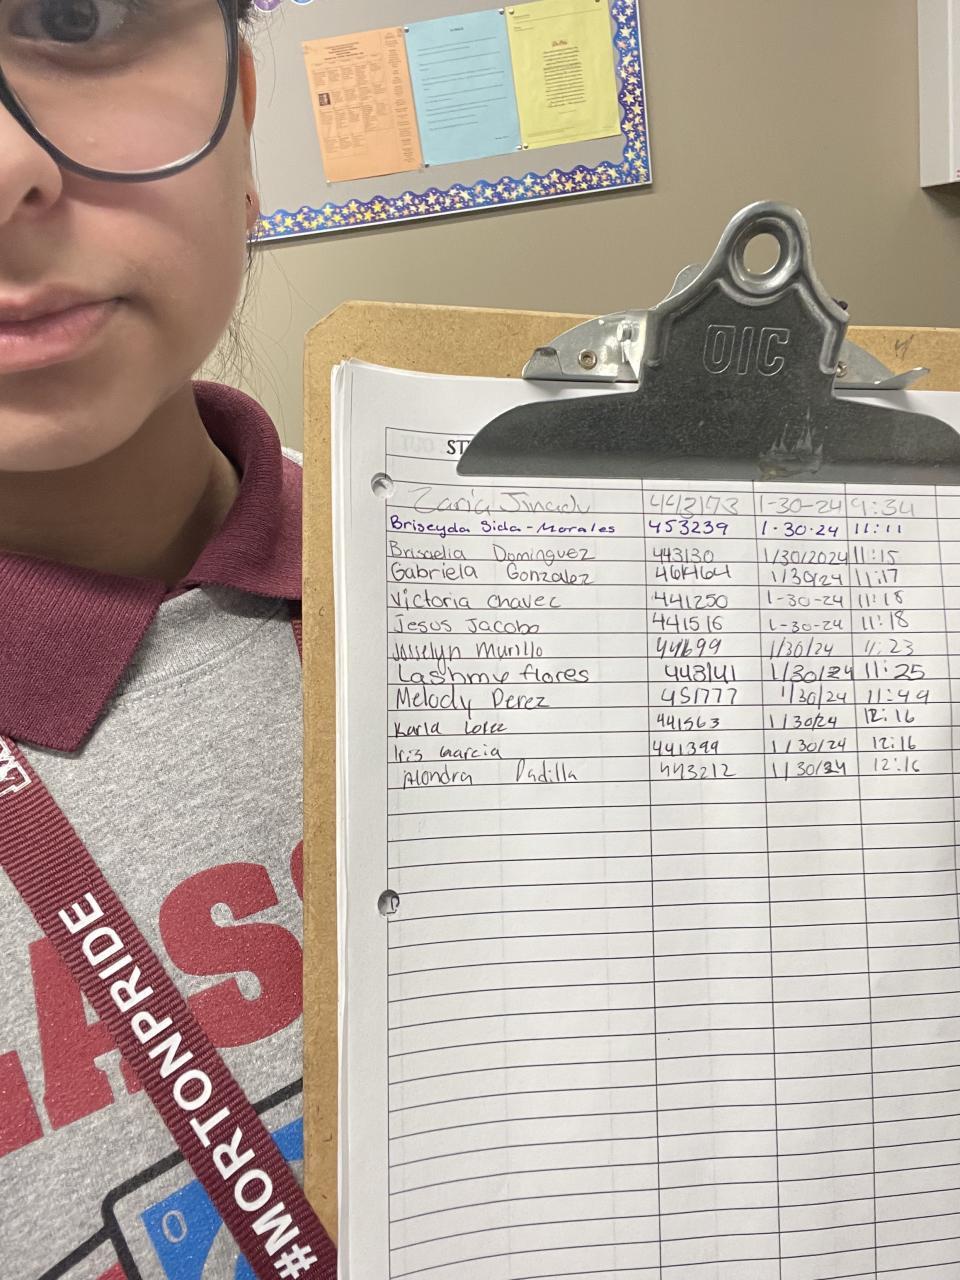 OIC
ST
Zaria Jinadu 443173 1-30-24 9:34
Briseyda Sida-Morales 453239 1·30·24 11:11
Brisaelia Dominguez 443130 1/30/2024 11:15
Gabriela Gonzalez 464464 1/30/24 11:17
Victoria Chavez 441250 1-30-24 11:18
Jesus Jacobo 441516 1-30-24 11:18
Josselyn Murillo 441699 1/30/24 11:23
Lashmy flores 443141 1/30/24 11:25
Melody Perez 451777 1/30/24 11:49
Karla Lopez 441563 1/30/24 12:16
Iris Garcia 441399 1/30/24 12:16
Alondra Padilla 443212 1/30/24 12:16
#MORTONPRIDE
LASS